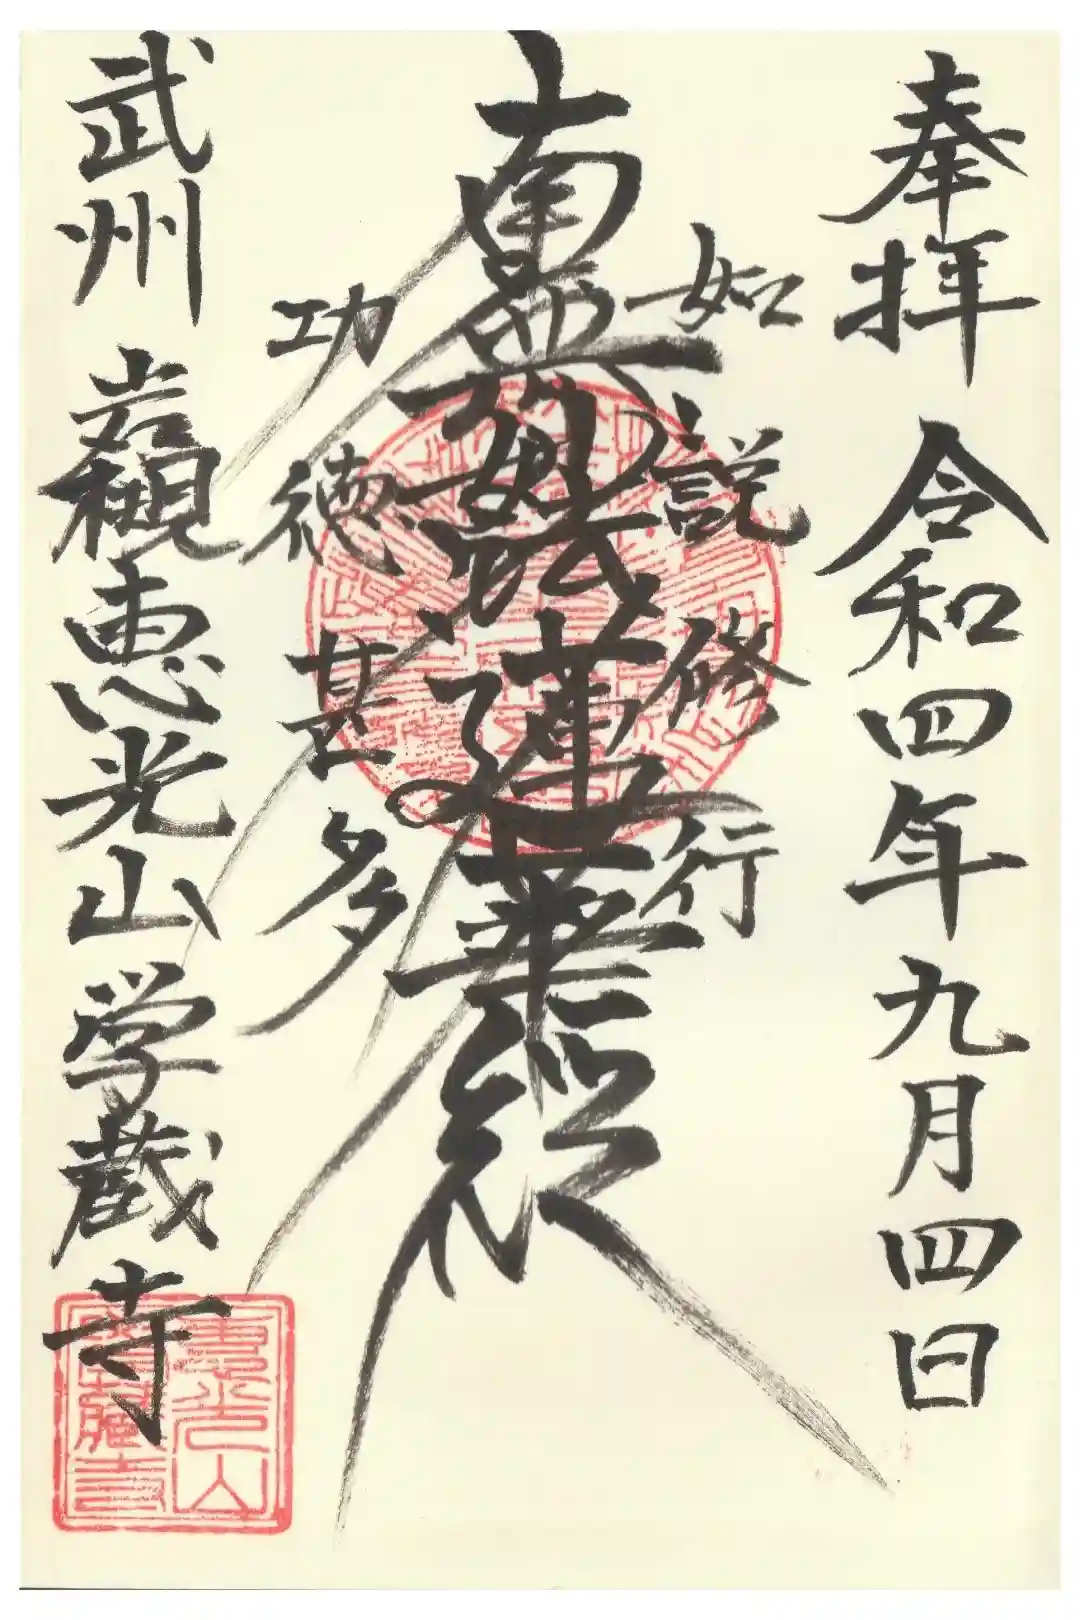 奉拝 令和四年九月四日
如説修行
南無妙法蓮華経
功徳甚多
武州 岩槻 恵光山 学蔵寺
恵光山
学蔵寺